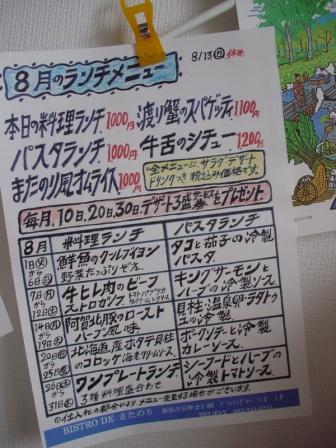 8/13(月)休み
8月のランチメニュー
本日の料理ランチ 1000円 渡り蟹のスパゲッティ 1100円
パスタランチ 1000円 牛舌のシチュー 1200円
またのり風オムライス 1000円
全メニューに、サラダ デザート
ドリンクつき 税込み価格です。
毎月、10日、20日、30日、デザート3種盛りをプレゼント
8月 料理ランチ パスタランチ
1日(水)から6日(月) 鮮魚の
野菜たっぷりぞえ タコと茄子の冷製パスタ
7日(火)から12日(日) 牛ヒレ肉のビーフストロガノフ キングサーモンとハーブの冷製
14日(火)から19日(日) 阿賀北豚のローストハーブ風味 貝柱・温泉卵・ラタトゥユの冷製
20日(月)から25日(土) 北海道産ホタテ貝柱のコロッケ 冷製カレーソース
26日(日)から31日(金) ワンプレートランチ
3種料理盛合わせ シーフードとハーブの冷製トマトソース
仕入れの都合により メニュー変更する場合がございます。
BISTRO DE またのり